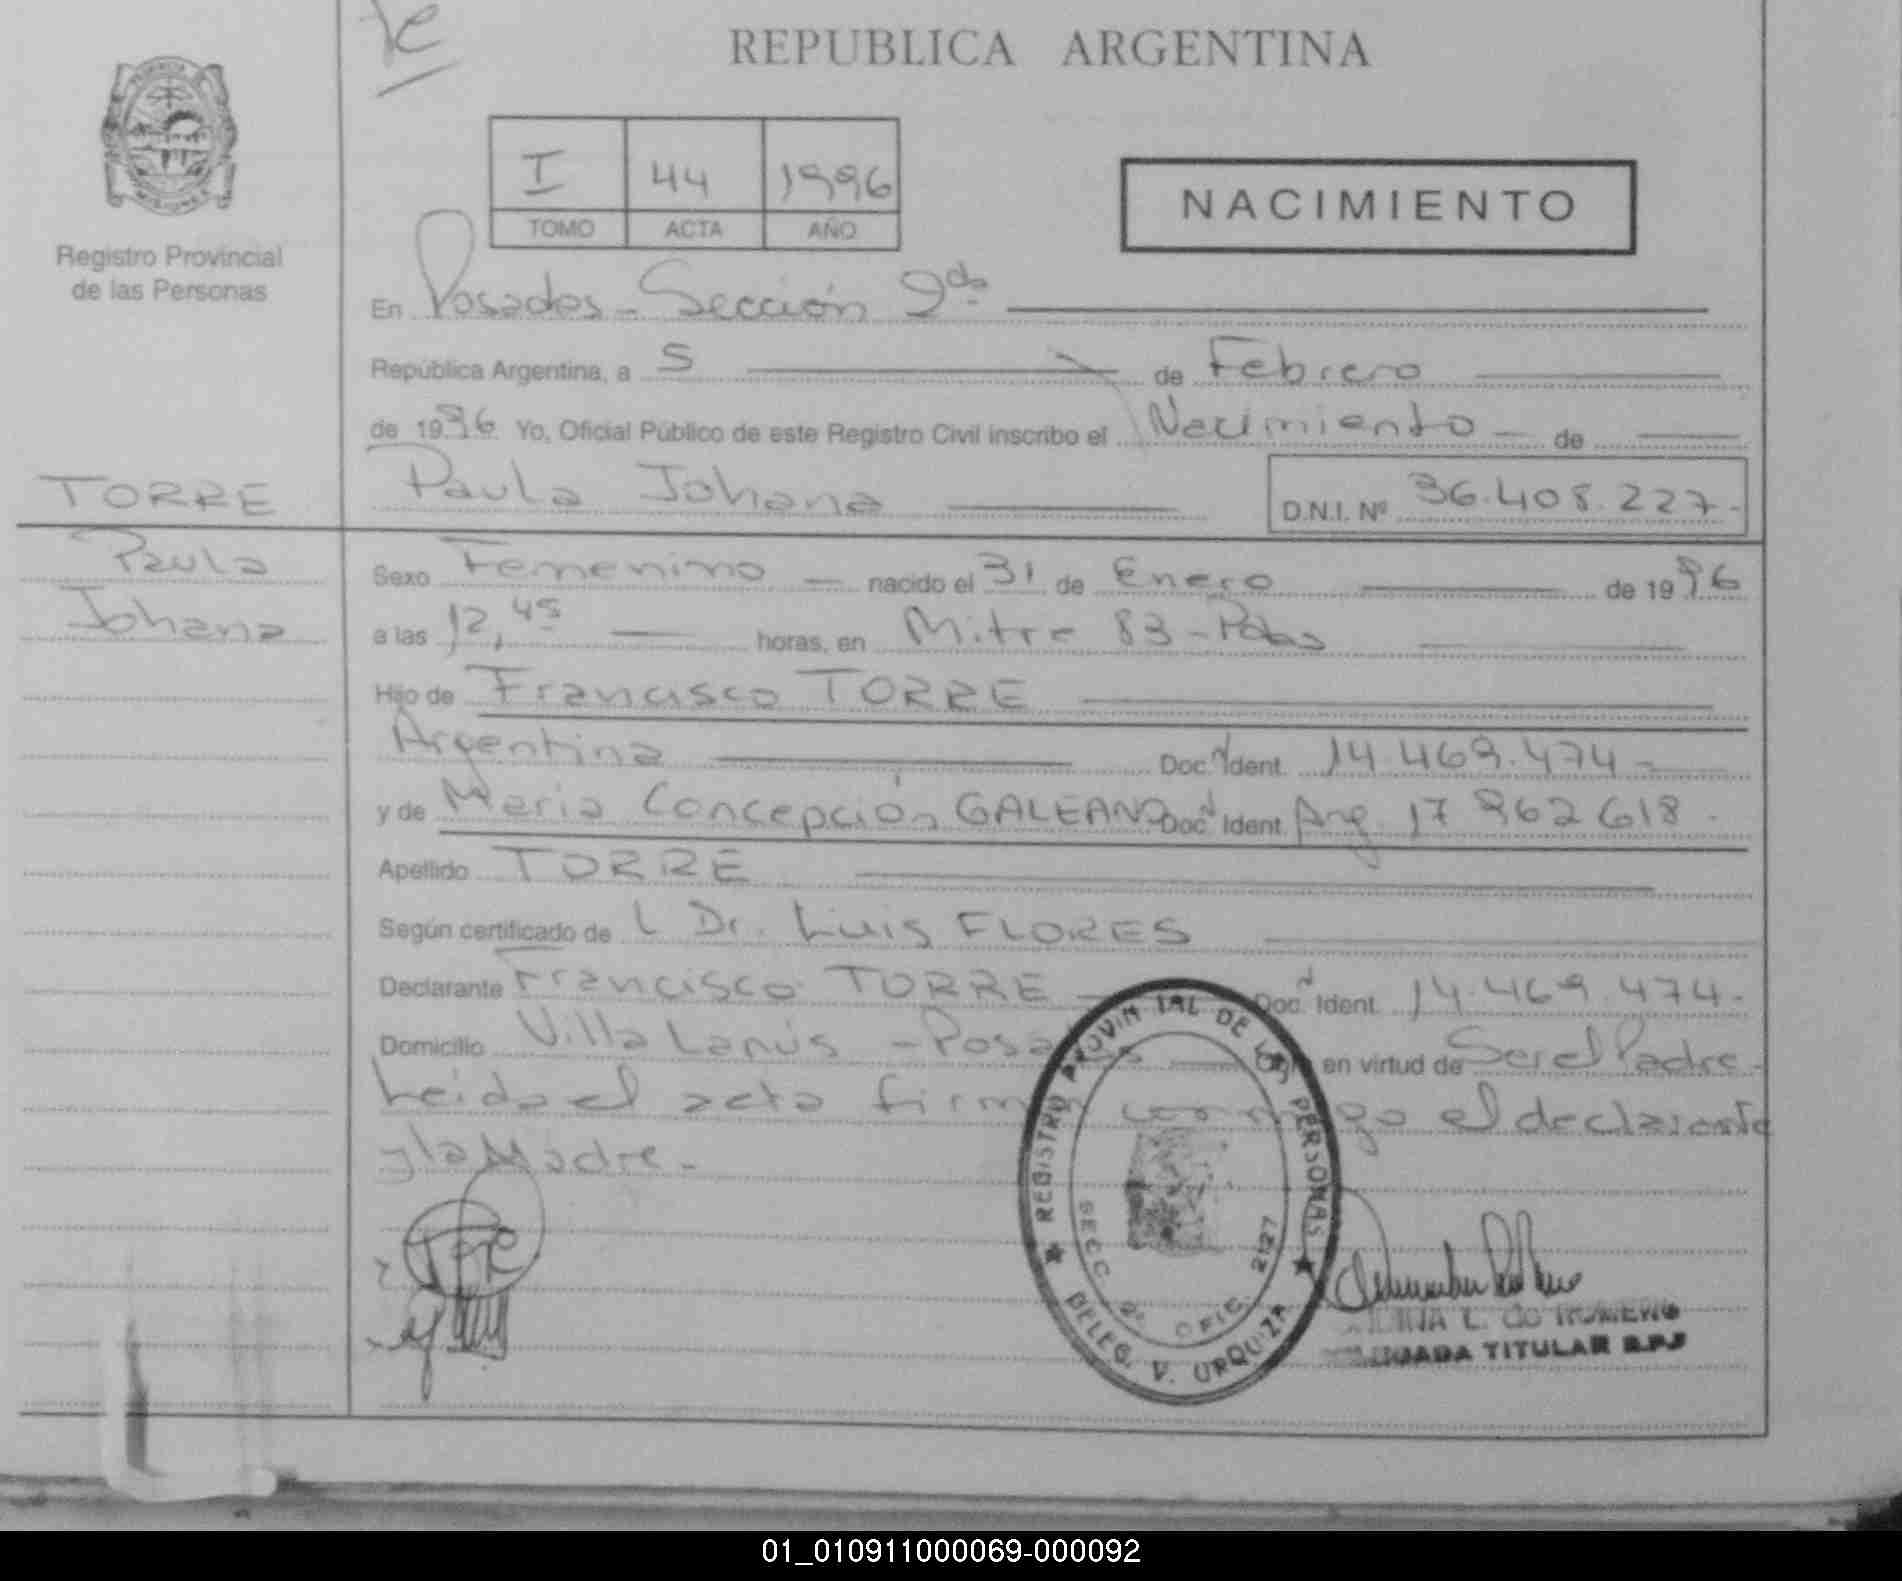 REPUBLICA ARGENTINA
PROVINCIA
MISIONES
Registro Provincial
de las Personas
I 44 1996
TOMO ACTA AÑO
NACIMIENTO
En Posadas - Sección 2da
República Argentina, a 5 de Febrero
de 1996 Yo, Oficial Público de este Registro Civil inscribo el Nacimiento - de
TORRE
Paula Johana
D.N.I. Nº 36.408.227.-
Paula
Johana
Sexo Femenino nacido el 31 de Enero de 1996
a las 12,45 horas, en Mitre 83 - Pdas
Hijo de Francisco TORRE
Argentina Doc. Ident. 14.469.474 -
y de Maria Concepción GALEANO Doc. Ident. Arg. 17 962 618 -
Apellido TORRE
Según certificado de L Dr. Luis FLORES
Declarante Francisco TORRE Doc. Ident. 14.469.474.-
Domicilio Villa Lanús - Posadas en virtud de Ser el Padre.-
Leida el acta firman conmigo el declarante
y la Madre.-
REGISTRO PROVINCIAL DE LAS PERSONAS
SECC 2ª OFIC. 2127
DELEG. V. URQUIZA
L. de ROMERO
TITULAR R.P.P.
01_010911000069-000092